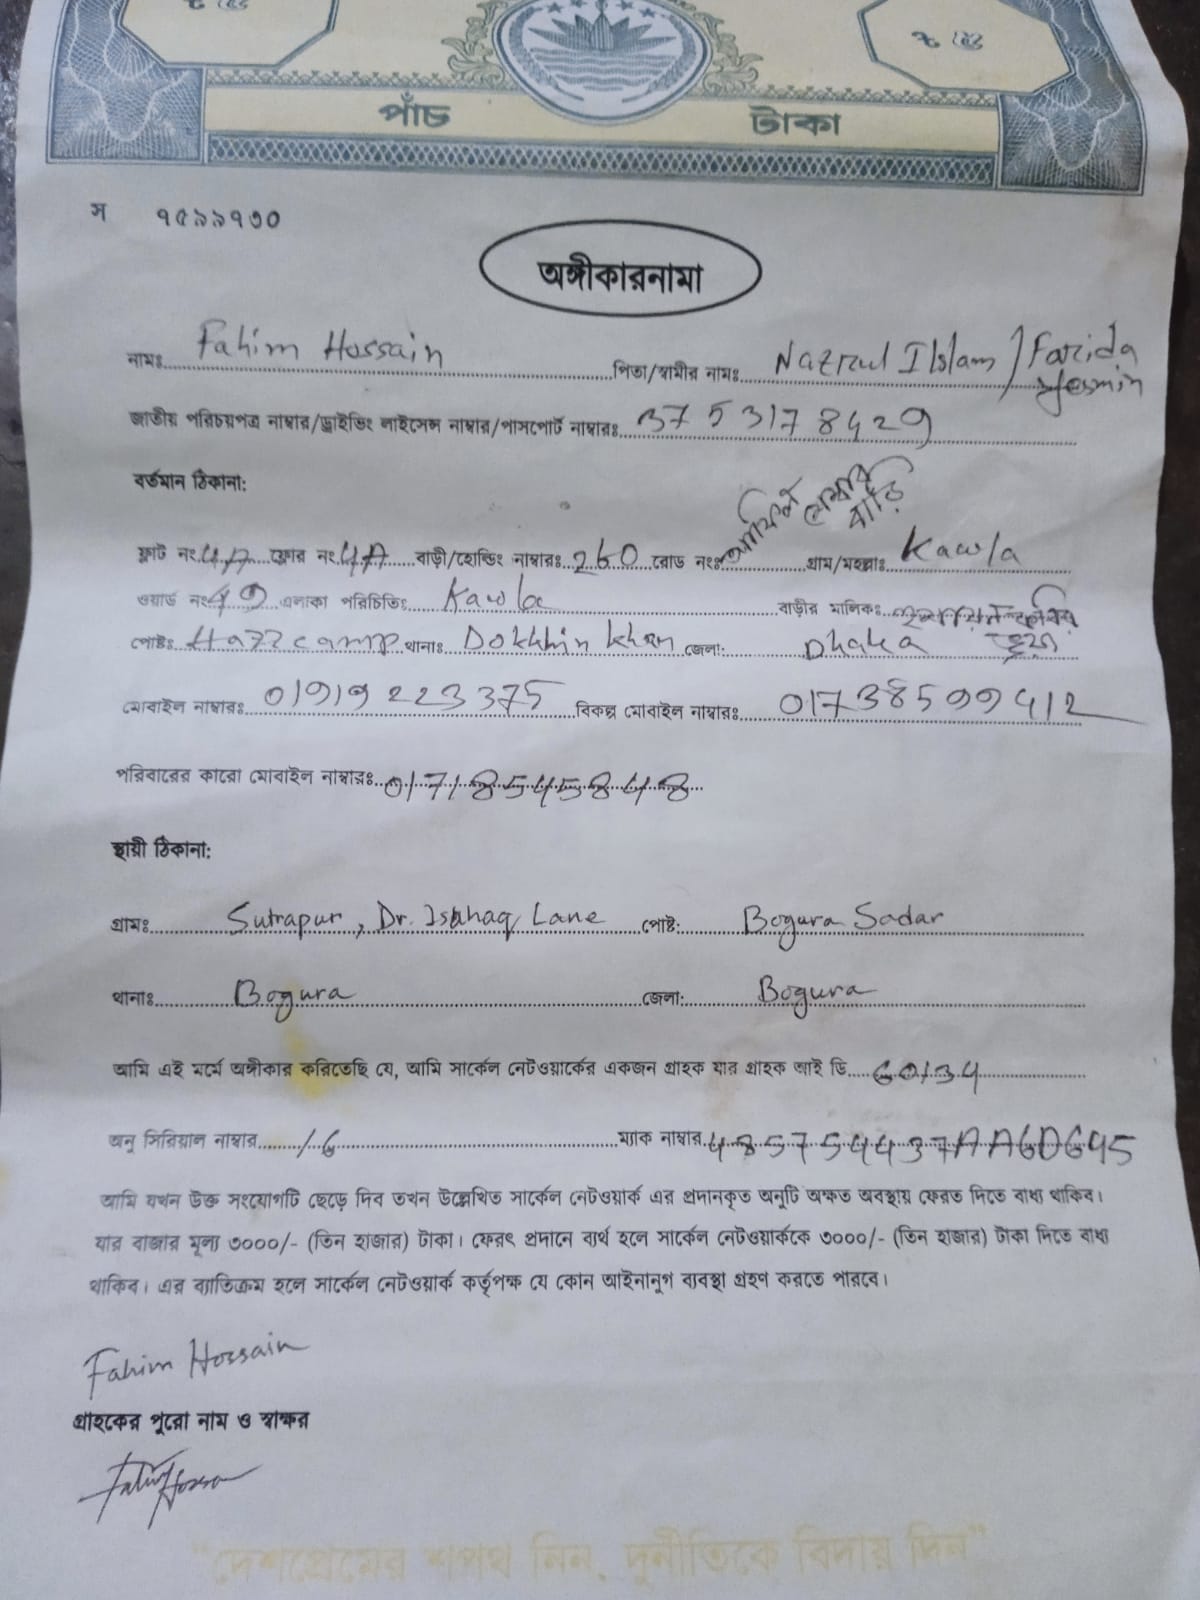 পাঁচ টাকা
স ৭৫৯৯৭৩০
অঙ্গীকারনামা
নামঃ Fahim Hossain পিতা/স্বামীর নামঃ Nazrul Islam / Farida Yesmin
জাতীয় পরিচয়পত্র নাম্বার/ড্রাইভিং লাইসেন্স নাম্বার/পাসপোর্ট নাম্বারঃ 3753178429
বর্তমান ঠিকানা:
ফ্লাট নং 4A ফ্লোর নং 4A বাড়ী/হোল্ডিং নাম্বারঃ 260 রোড নংঃ মেম্বার বাড়ি গ্রাম/মহল্লাঃ Kawla
ওয়ার্ড নং 49 এলাকা পরিচিতিঃ Kawla বাড়ীর মালিকঃ
পোষ্টঃ Hazz camp থানাঃ Dokhhin khan জেলা: Dhaka
মোবাইল নাম্বারঃ 01919223375 বিকল্প মোবাইল নাম্বারঃ 01738599412
পরিবারের কারো মোবাইল নাম্বারঃ 01718545848
স্থায়ী ঠিকানা:
গ্রামঃ Sutrapur, Dr. Ishhaq Lane পোষ্ট: Bogura Sadar
থানাঃ Bogura জেলা: Bogura
আমি এই মর্মে অঙ্গীকার করিতেছি যে, আমি সার্কেল নেটওয়ার্কের একজন গ্রাহক যার গ্রাহক আই ডি 60134
অনু সিরিয়াল নাম্বার 16 ম্যাক নাম্বার 485754437AA6D645
আমি যখন উক্ত সংযোগটি ছেড়ে দিব তখন উল্লেখিত সার্কেল নেটওয়ার্ক এর প্রদানকৃত অনুটি অক্ষত অবস্থায় ফেরত দিতে বাধ্য থাকিব।
যার বাজার মূল্য ৩০০০/- (তিন হাজার) টাকা। ফেরৎ প্রদানে ব্যর্থ হলে সার্কেল নেটওয়ার্ককে ৩০০০/- (তিন হাজার) টাকা দিতে বাধ্য
থাকিব। এর ব্যাতিক্রম হলে সার্কেল নেটওয়ার্ক কর্তৃপক্ষ যে কোন আইনানুগ ব্যবস্থা গ্রহণ করতে পারবে।
Fahim Hossain
গ্রাহকের পুরো নাম ও স্বাক্ষর
"দেশপ্রেমের শপথ নিন, দুর্নীতিকে বিদায় দিন"